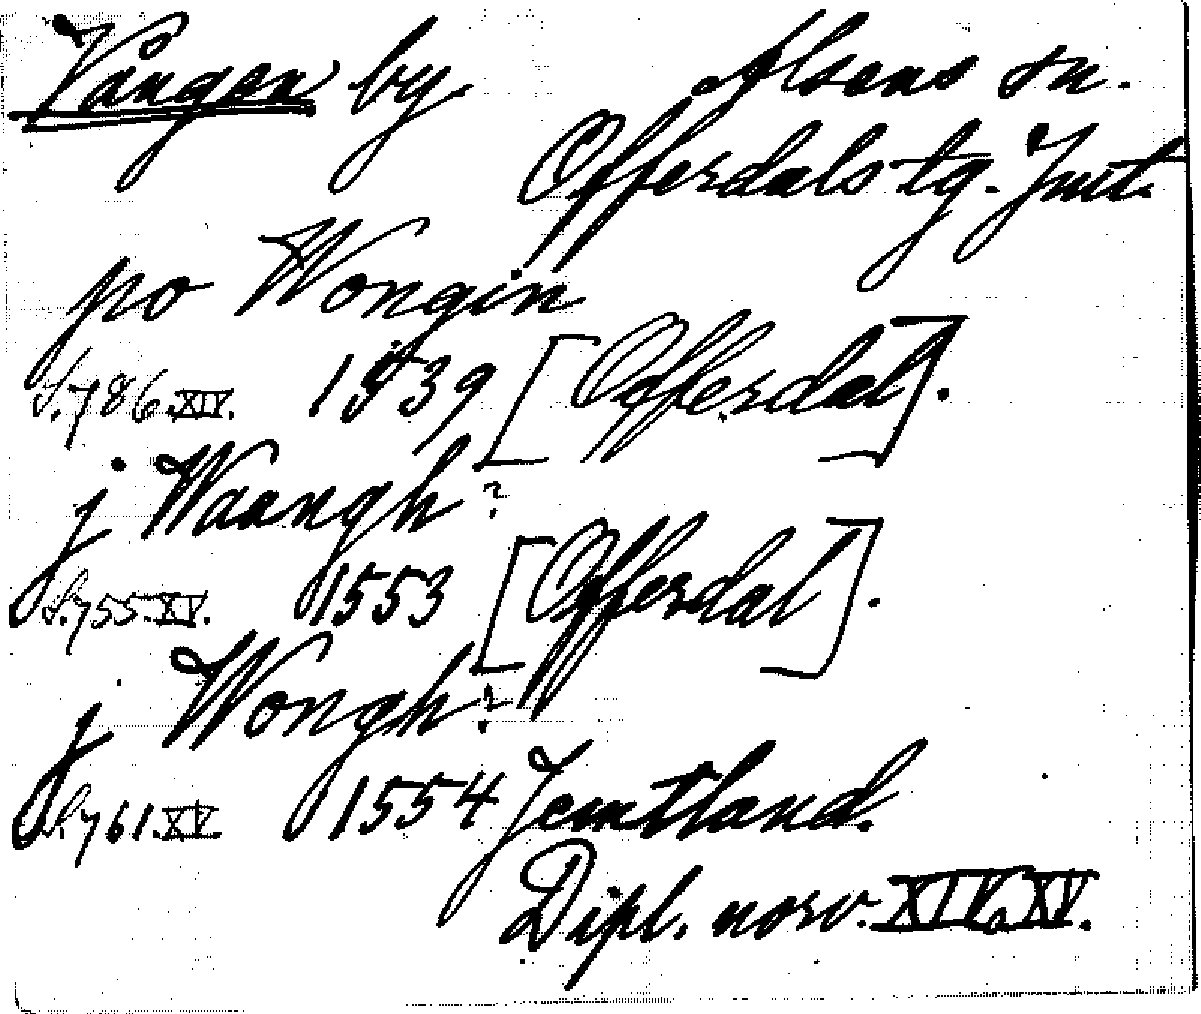 Vången by. Alsens sn.
Offerdals tg. Jmt.
po Wongin
S. 786. XIV. 1539 [Offerdal].
j Waangh?
S. 755. XV. 1553 [Offerdal].
j Wongh?
S. 761. XV. 1554 Jemtland.
Dipl. norv. XIV o XV.